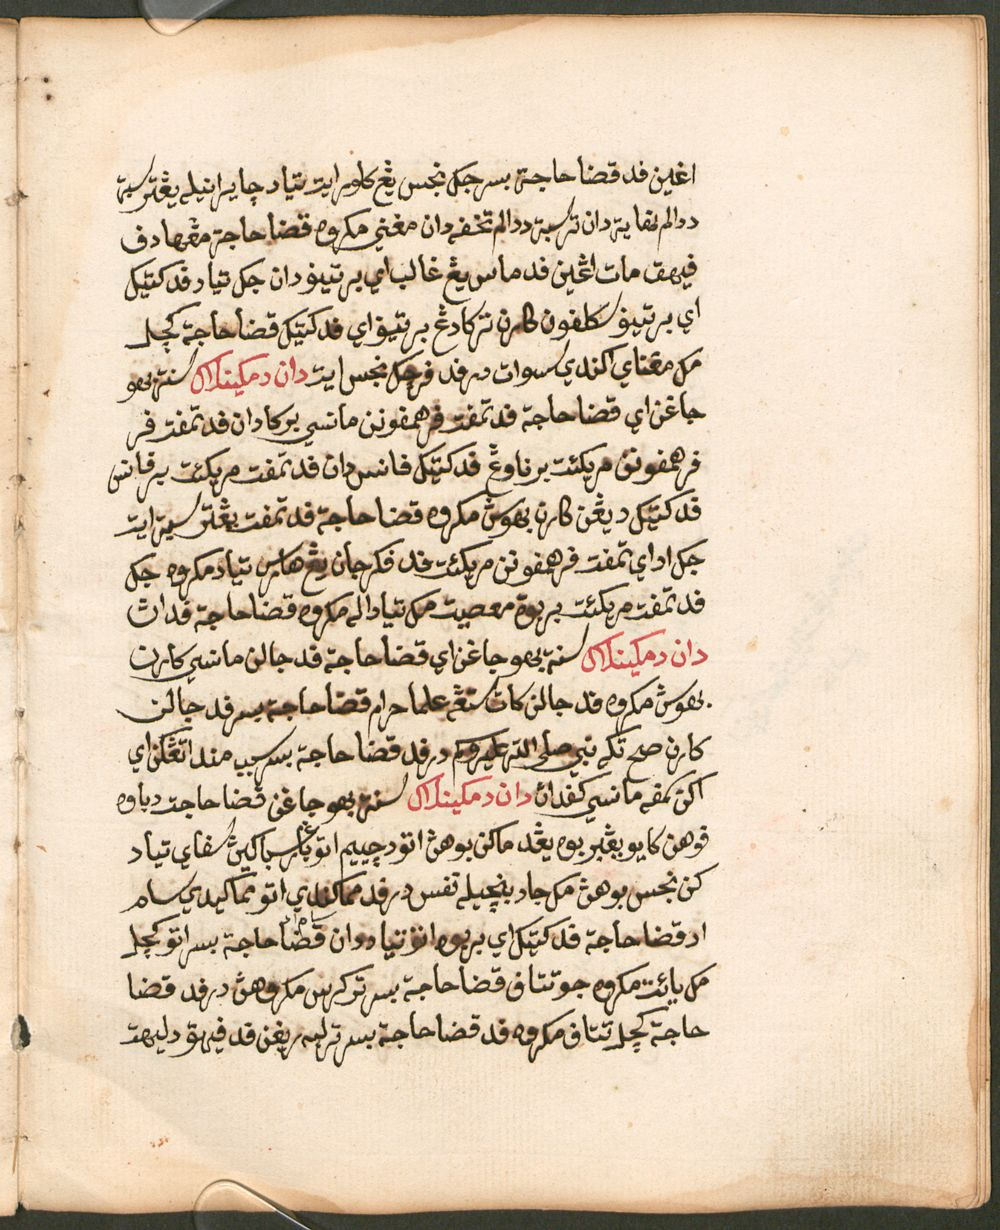 اڠين فد قضا حاجة بسر جک نجس يڠ کلور ايت تياد چاير انيله يڠترسبة
ددالم نهاية دان ترسبة ددالم تحفه دان مغني مکروه قضا حاجة مڠهادف
فيهق مات اڠين فد ماس يڠ غالب اي برتيڤ دان جک تياد فد کتيک
اي برتيڤ سکلفون کارن ترکادڠ برتيڤ اي فد کتيک قضا حاجة کچل
مک مڠناي اکندي سوات درفد فرچک نجس ايت دان دمکينلاݢ سنة بهو
جاغن اي قضا حاجة فد تمفت فرهمفونن مانسي برکات دان فد تمفت فر
فرهمفونن مريکئت برناوڠ فد کتيک فانس دان فد تمفت مريکئت برفانس
فد کتيک ديڠن کارن بهوسڽ مکروه قضا حاجة فد تمفت يڠترسبة ايت
جک اد اي تمفت فرهمفونن مريکئت فد فکرجأن يڠ هارس تياد مکروه جک
فد تمفت مريکئت بربوة معصيت مک تيادله مکروه قضا حاجة فداڽ
دان دمکينلاݢ سنة بهو جاغن اي قضا حاجة فد جالن مانسي کارن
بهوسڽ مکروه فد جالن کات ستڠه علما حرام قضا حاجة بسر فد جالن
کارن صح تݢه نبي صلى الله عليه وسلم درفد قضا حاجة بسر سبب منداتڠکن اي
اکن سمفه مانسي کفداڽ دان دمکينلاݢ سنة بهو جاغن قضا حاجت دباوه
فوهن کايو يڠبربوه يڠد ماکن بوهڽ اتو دچييم اتو باݢي سباݢيڽ سفاي تياد
کن نجس بوهڽ مک جاد بنچيله نفس درفد مماکندي اتو مماکيدي سام
اد قضا حاجة فد کتيک اي بربوه اتو تياد دان قضا حاجة بسر اتو کچل
مک يائت مکروه جو تتاف قضا حاجة بسر ترکرس مکروهڽ درفد قضا
حاجة کچل تتاف مکروه فد قضا حاجة بسر ترلبه ريڠن فد فيهق دليهت